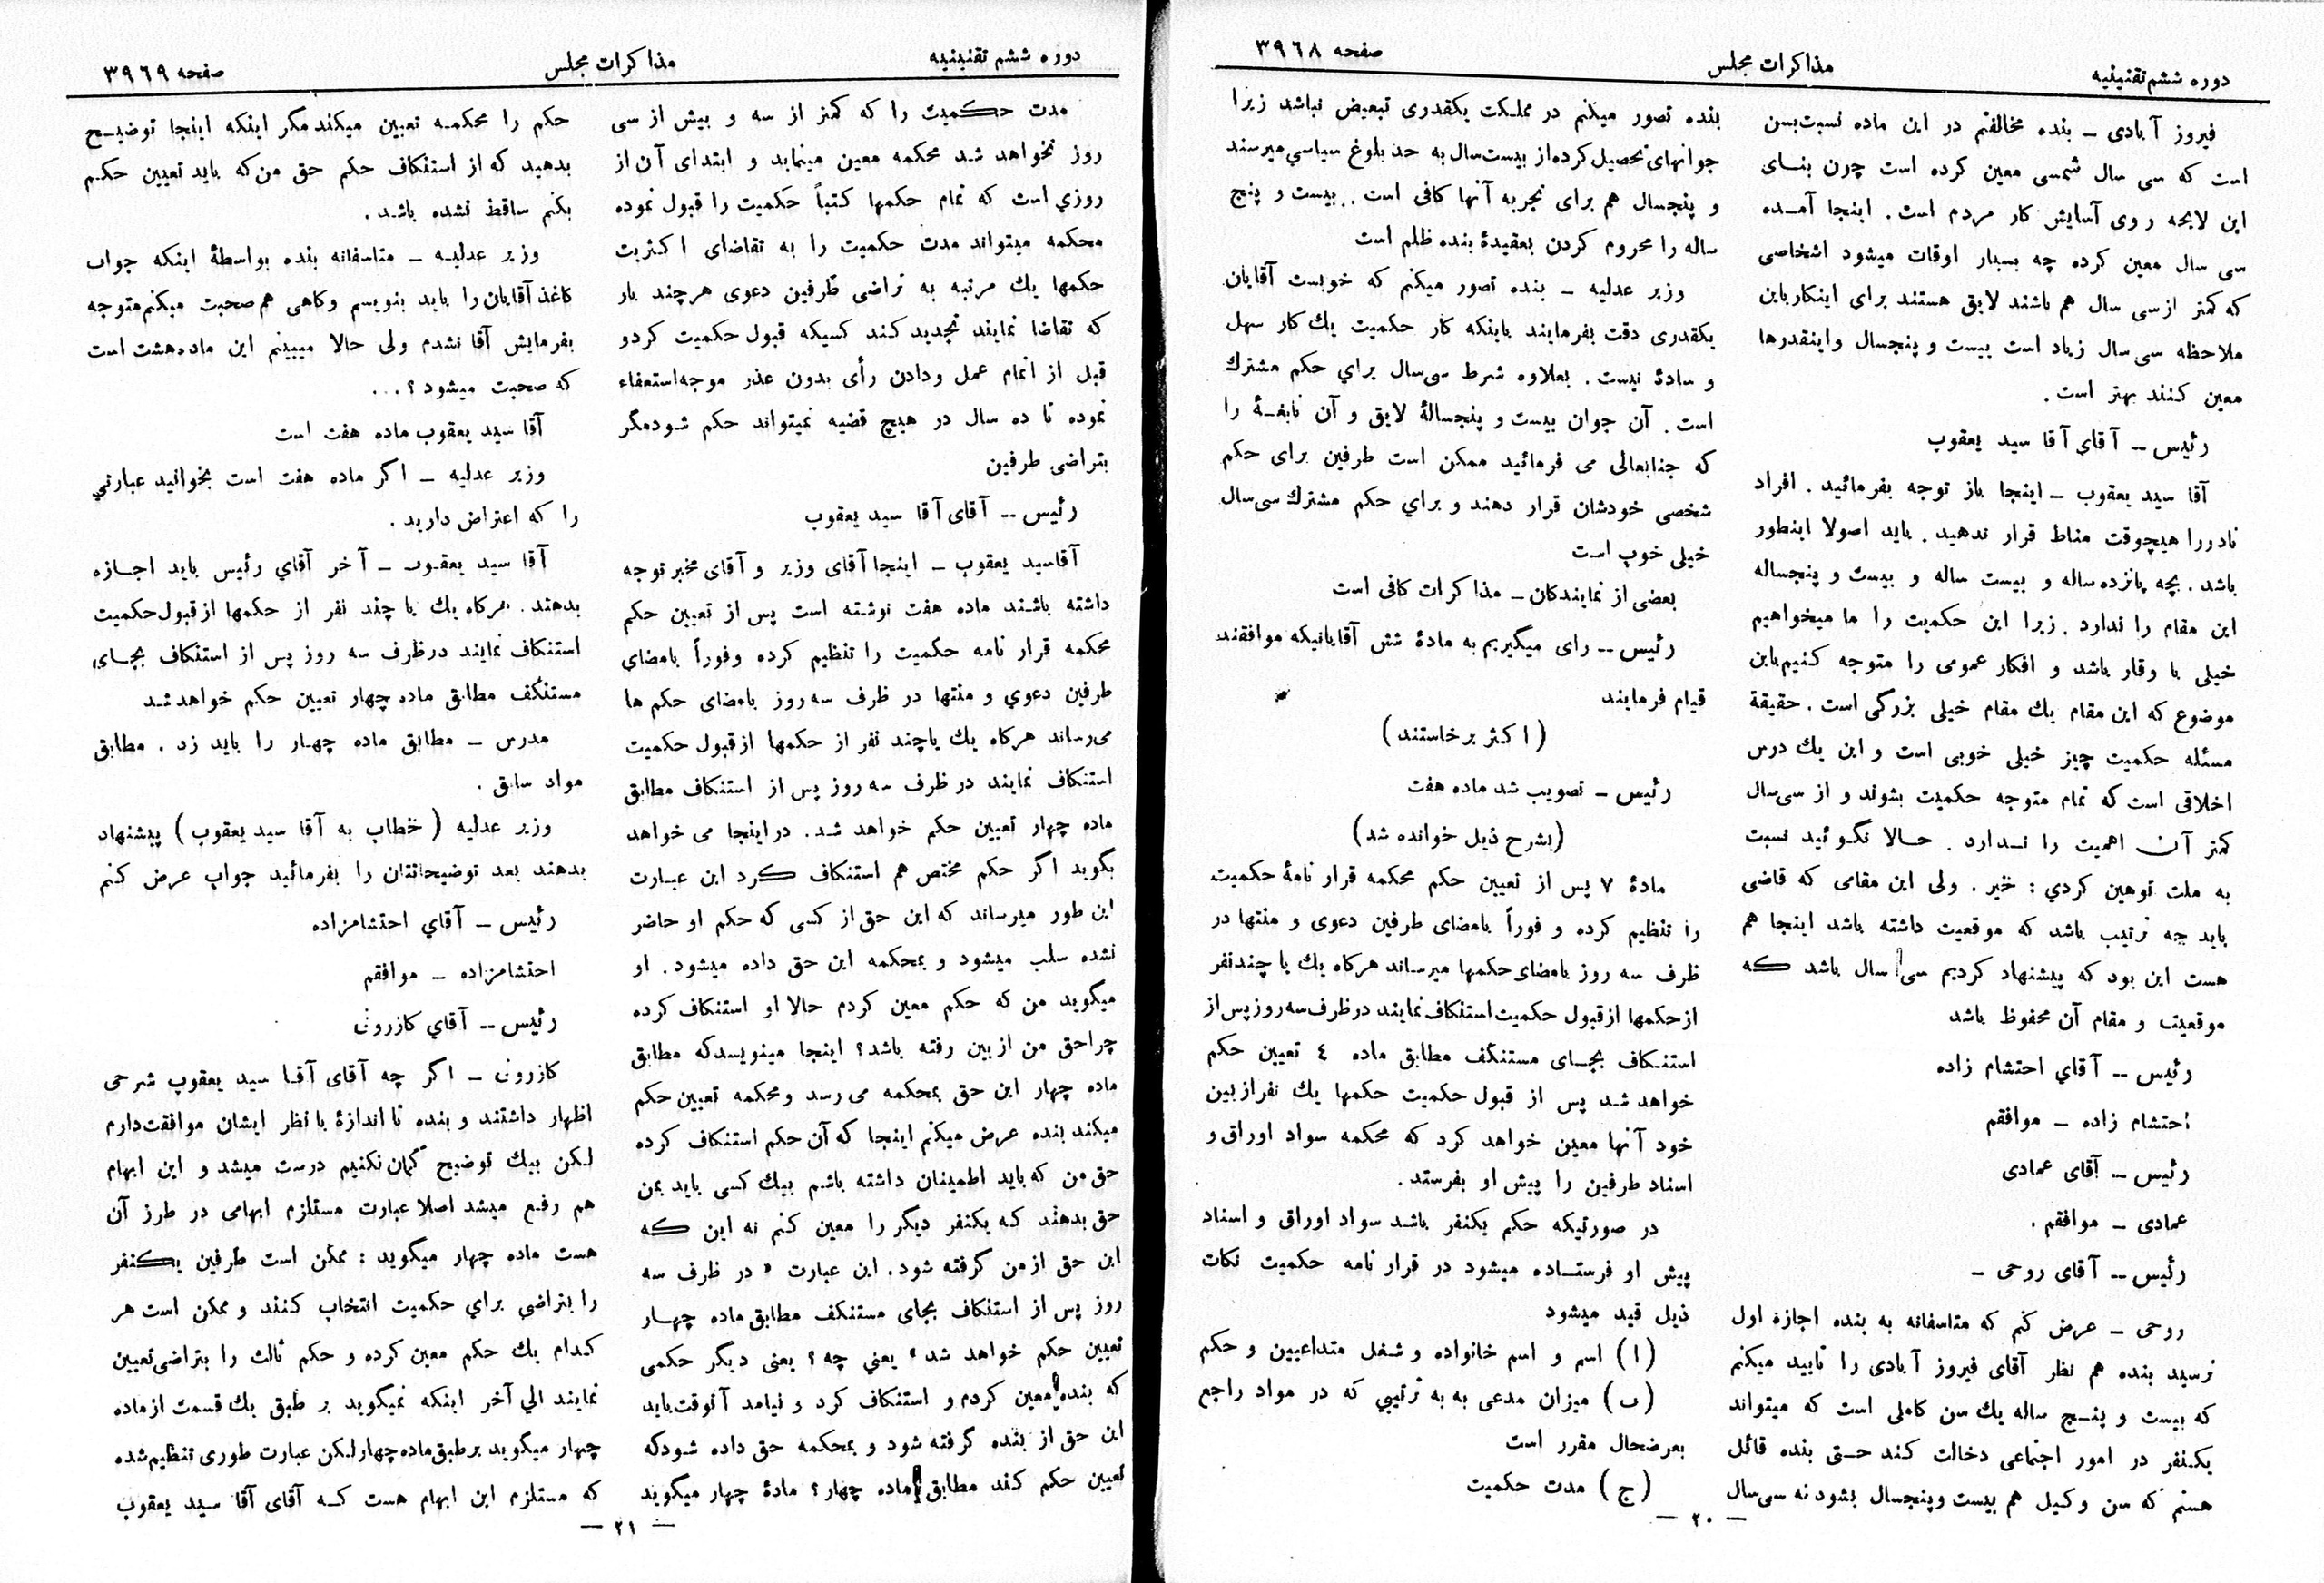 دوره ششم تقنینیه
مذاکرات مجلس
صفحه ۳۹٦۸
فیروز آبادی ــ بنده مخالفم در این ماده نسبت بسن
است که سی سال شمسی معین کرده است چون بنای
این لایحه روی آسایش کار مردم است. اینجا آمده
سی سال معین کرده چه بسیار اوقات میشود اشخاصی
که کمتر از سی سال هم باشند لایق هستند برای اینکار باین
ملاحظه سی سال زیاد است بیست و پنجسال و اینقدرها
معین کنند بهتر است.
رئیس ــ آقای آقا سید یعقوب
آقا سید یعقوب ــ اینجا باز توجه بفرمائید. افراد
نادر را هیچوقت مناط قرار ندهید. باید اصولا اینطور
باشد. بچه پانزده ساله و بیست ساله و بیست و پنجساله
این مقام را ندارد. زیرا این حکمیت را ما میخواهیم
خیلی با وقار باشد و افکار عمومی را متوجه کنیم باین
موضوع که این مقام یك مقام خیلی بزرگی است. حقیقة
مسئله حکمیت چیز خیلی خوبی است و این یك درس
اخلاقی است که تمام متوجه حکمیت بشوند و از سی سال
کمتر آن اهمیت را ندارد. حالا نگوئید نسبت
به ملت توهین کردي : خیر. ولی این مقامی که قاضی
باید چه ترتیب باشد که موقعیت داشته باشد اینجا هم
هست این بود که پیشنهاد کردیم سی سال باشد که
موقعیت و مقام آن محفوظ باشد
رئیس ــ آقاي احتشام زاده
احتشام زاده ــ موافقم
رئیس ــ آقای عمادی
عمادی ــ موافقم.
رئیس ــ آقای روحی ــ
روحی ــ عرض کنم که متاسفانه به بنده اجازه اول
نرسید بنده هم نظر آقای فیروز آبادی را تایید میکنم
که بیست و پنج ساله یك سن کاملی است که میتواند
یکنفر در امور اجتماعی دخالت کند حتی بنده قائل
هستم که سن وکیل هم بیست و پنجسال بشود نه سی سال
بنده تصور میکنم در مملکت یکقدری تبعیض نباشد زیرا
جوانهای تحصیل کرده از بیست سال به حد بلوغ سیاسي میرسند
و پنجسال هم برای تجربه آنها کافی است.. بیست و پنج
ساله را محروم کردن بعقیدۀ بنده ظلم است
وزیر عدلیه ــ بنده تصور میکنم که خوبست آقایان
یکقدری دقت بفرمایند باینکه کار حکمیت یك کار سهل
و سادۀ نیست. بعلاوه شرط سی سال براي حکم مشترك
است. آن جوان بیست و پنجسالۀ لایق و آن نابغۀ را
که جنابعالی می فرمائید ممکن است طرفین برای حکم
شخصی خودشان قرار دهند و براي حکم مشترك سی سال
خیلی خوب است
بعضی از نمایندگان ــ مذاکرات کافی است
رئیس ــ رای میگیریم به مادۀ شش آقایانیکه موافقند
قیام فرمایند
(اکثر برخاستند)
رئیس ــ تصویب شد ماده هفت
(بشرح ذیل خوانده شد)
مادۀ ۷ پس از تعیین حکم محکمه قرار نامۀ حکمیت
را تنظیم کرده و فوراً بامضای طرفین دعوی و منتها در
ظرف سه روز بامضای حکمها میرساند هرگاه یك یا چند نفر
از حکمها از قبول حکمیت استنکاف نمایند در ظرف سه روز پس از
استنکاف بجای مستنکف مطابق ماده ٤ تعیین حکم
خواهد شد پس از قبول حکمیت حکمها یك نفر از بین
خود آنها معین خواهد کرد که محکمه سواد اوراق و
اسناد طرفین را پیش او بفرستد.
در صورتیکه حکم یکنفر باشد سواد اوراق و اسناد
پیش او فرستاده میشود در قرار نامه حکمیت نکات
ذیل قید میشود
(ا) اسم و اسم خانواده و شغل متداعیین و حکم
(ب) میزان مدعی به به ترتیبي که در مواد راجع
بعرضحال مقرر است
(ج) مدت حکمیت
ــ ۲۰ ــ
دوره ششم تقنینیه
مذاکرات مجلس
صفحه ۳۹٦۹
مدت حکمیت را که کمتر از سه و بیش از سی
روز نخواهد شد محکمه معین مینماید و ابتدای آن از
روزي است که تمام حکمها کتباً حکمیت را قبول نموده
محکمه میتواند مدت حکمیت را به تقاضای اکثریت
حکمها یك مرتبه به تراضی طرفین دعوی هرچند بار
که تقاضا نمایند تجدید کند کسیکه قبول حکمیت کرد و
قبل از اتمام عمل و دادن رأی بدون عذر موجه استعفاء
نموده تا ده سال در هیچ قضیه نمیتواند حکم شود مگر
بتراضی طرفین
رئیس ــ آقای آقا سید یعقوب
آقاسید یعقوب ــ اینجا آقای وزیر و آقای مخبر توجه
داشته باشند ماده هفت نوشته است پس از تعیین حکم
محکمه قرار نامه حکمیت را تنظیم کرده و فوراً بامضای
طرفین دعوي و منتها در ظرف سه روز بامضای حکم ها
می‌رساند هرگاه یك یا چند نفر از حکمها از قبول حکمیت
استنکاف نمایند در ظرف سه روز پس از استنکاف مطابق
ماده چهار تعیین حکم خواهد شد. در اینجا می خواهد
بگوید اگر حکم مختص هم استنکاف کرد این عبارت
این طور میرساند که این حق از کسی که حکم او حاضر
نشده سلب میشود و بمحکمه این حق داده میشود. او
میگوید من که حکم معین کردم حالا او استنکاف کرده
چرا حق من از بین رفته باشد؟ اینجا مینویسد که مطابق
ماده چهار این حق بمحکمه می رسد و محکمه تعیین حکم
میکند بنده عرض میکنم اینجا که آن حکم استنکاف کرده
حق من که باید اطمینان داشته باشم بیك کسی باید بمن
حق بدهند که یکنفر دیگر را معین کنم نه این که
این حق از من گرفته شود. این عبارت « در ظرف سه
روز پس از استنکاف بجای مستنکف مطابق ماده چهار
تعیین حکم خواهد شد » یعني چه؟ یعنی دیگر حکمی
که بنده معین کردم و استنکاف کرد و نیامد آنوقت باید
این حق از بنده گرفته شود و بمحکمه حق داده شود که
تعیین حکم کند مطابق ماده چهار؟ مادۀ چهار میگوید
حکم را محکمه تعیین میکند مگر اینکه اینجا توضیح
بدهید که از استنکاف حکم حق من که باید تعیین حکم
بکنم ساقط نشده باشد.
وزیر عدلیه ــ متاسفانه بنده بواسطۀ اینکه جواب
کاغذ آقایان را باید بنویسم و گاهی هم صحبت میکنم متوجه
بفرمایش آقا نشدم ولی حالا میبینم این ماده هشت است
که صحبت میشود؟...
آقا سید یعقوب ماده هفت است
وزیر عدلیه ــ اگر ماده هفت است بخوانید عبارتي
را که اعتراض دارید.
آقا سید یعقوب ــ آخر آقاي رئیس باید اجازه
بدهند. هرگاه یك یا چند نفر از حکمها از قبول حکمیت
استنکاف نمایند در ظرف سه روز پس از استنکاف بجای
مستنکف مطابق ماده چهار تعیین حکم خواهد شد
مدرس ــ مطابق ماده چهار را باید زد. مطابق
مواد سابق.
وزیر عدلیه (خطاب به آقا سید یعقوب) پیشنهاد
بدهند بعد توضیحاتتان را بفرمائید جواب عرض کنم
رئیس ــ آقاي احتشامزاده
احتشامزاده ــ موافقم
رئیس ــ آقاي کازرونی
کازرونی ــ اگر چه آقای آقا سید یعقوب شرحی
اظهار داشتند و بنده تا اندازۀ با نظر ایشان موافقت دارم
لکن بیك توضیح گمان نکنیم درست میشد و این ابهام
هم رفع میشد اصلا عبارت مستلزم ابهامی در طرز آن
هست ماده چهار میگوید : ممکن است طرفین یکنفر
را بتراضي براي حکمیت انتخاب کنند و ممکن است هر
کدام یك حکم معین کرده و حکم ثالث را بتراضی تعیین
نمایند الي آخر اینکه نمیگوید بر طبق یك قسمت از ماده
چهار میگوید برطبق ماده چهار لکن عبارت طوری تنظیم شده
که مستلزم این ابهام هست که آقای آقا سید یعقوب
ــ ۲۱ ــ